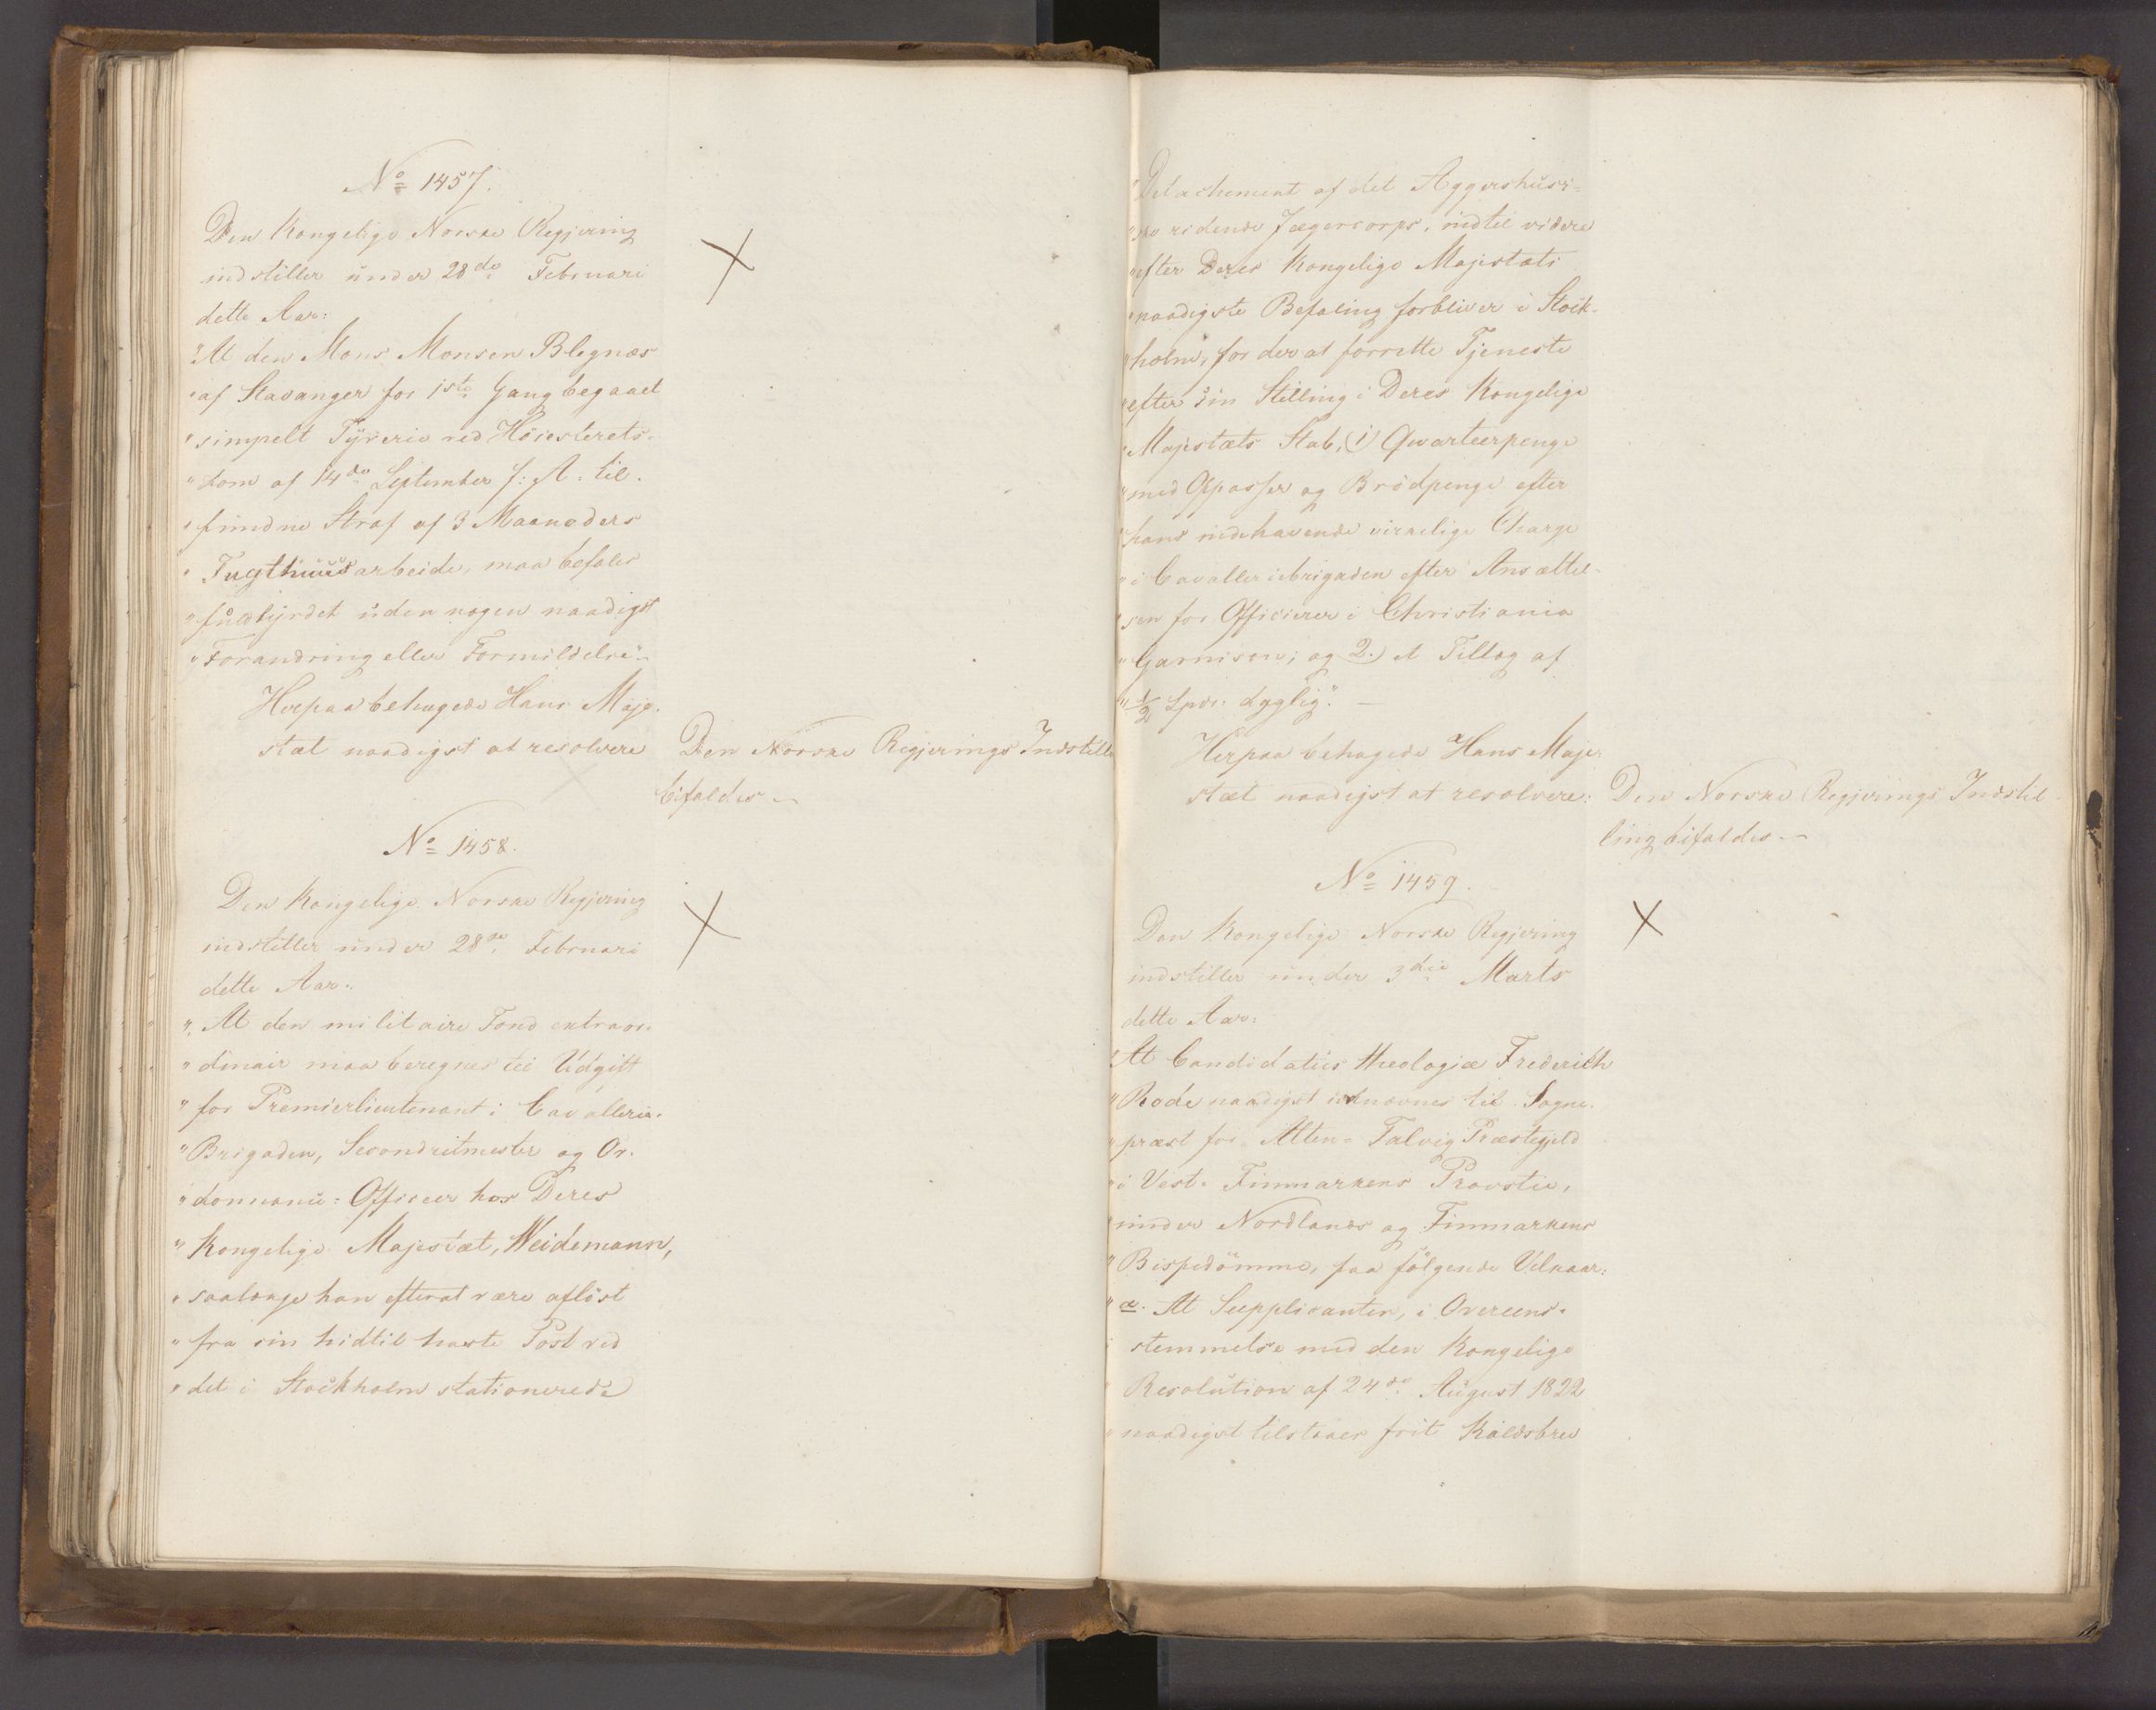 No 1457.
Den Kongelige Norske Regjering
indstiller under 28de Februari
dette Aar:
"At den Mons Monsen Blegnæs
"af Stavanger for 1ste Gang begaaet
"simpelt Tyverie ved Höiesterets-
"dom af 14de September f: A. til-
"fundne Straf af 3 Maaneders
"Tugthuusarbeide, maa befales
"fuldbyrdet uden nogen naadigst
"Forandring eller Formildelse"-
Herpaa behagede Hans Maje-
stæt naadigst at resolvere
Den Norske Regjerings Indstill
bifaldes -
No 1458.
Den Kongelige Norske Regjering
indstiller under 28de Februari
dette Aar:
"At den militaire Fond extraor-
"dinair maa beregnes til Udgift
"for Premierlieutenant i Cavallerie-
"Brigaden, Secondritmester og Or-
"donnance-Officeer hos Deres
"Kongelige Majestæt, Weidemann,
"saalænge han efterat være aflöst
"fra sin hidtil havte Post ved
"det i Stockholm stationerede
"Detachement af det Aggershusi-
"ske ridende Jægercorps, indtil videre
"efter Deres Kongelige Majestæts
"naadigste Befaling forbliver i Stock-
"holm, for der at forrette Tjeneste
"efter sin Stilling i Deres Kongelige
"Majestæts Stab, 1) Qvarteerpenge
"med Opasser og Brödpenge efter
"hans indehavende virkelige Charge
"i Cavalleriebrigaden efter Ansættel-
"sen for Officierer i Christiania
"Garnison; og 2.) et Tillæg af
"1/2 Spd: dyglig". -
Herpaa behagede Hans Maje-
stæt naadigst at resolvere:
Den Norske Regjerings Indstil-
ling bifaldes -
No 1459.
Den Kongelige Norske Regjering
indstiller under 3die Marts
dette Aar:
"At Candidatus theologiæ Frederich
"Rode naadigst udnævnes til Sogne-
"præst for Alten-Talvig Præstegjeld
"i Vest-Finmarkens Provstie,
"under Nordlands og Finmarkens
"Bispedömme, paa fölgende Vilkaar:
"a. At Supplicanten, i Overeens-
"stemmelse med den Kongelige
"Resolution af 24de August 1822
"naadigst tilstaaes frit Kaldsbrev